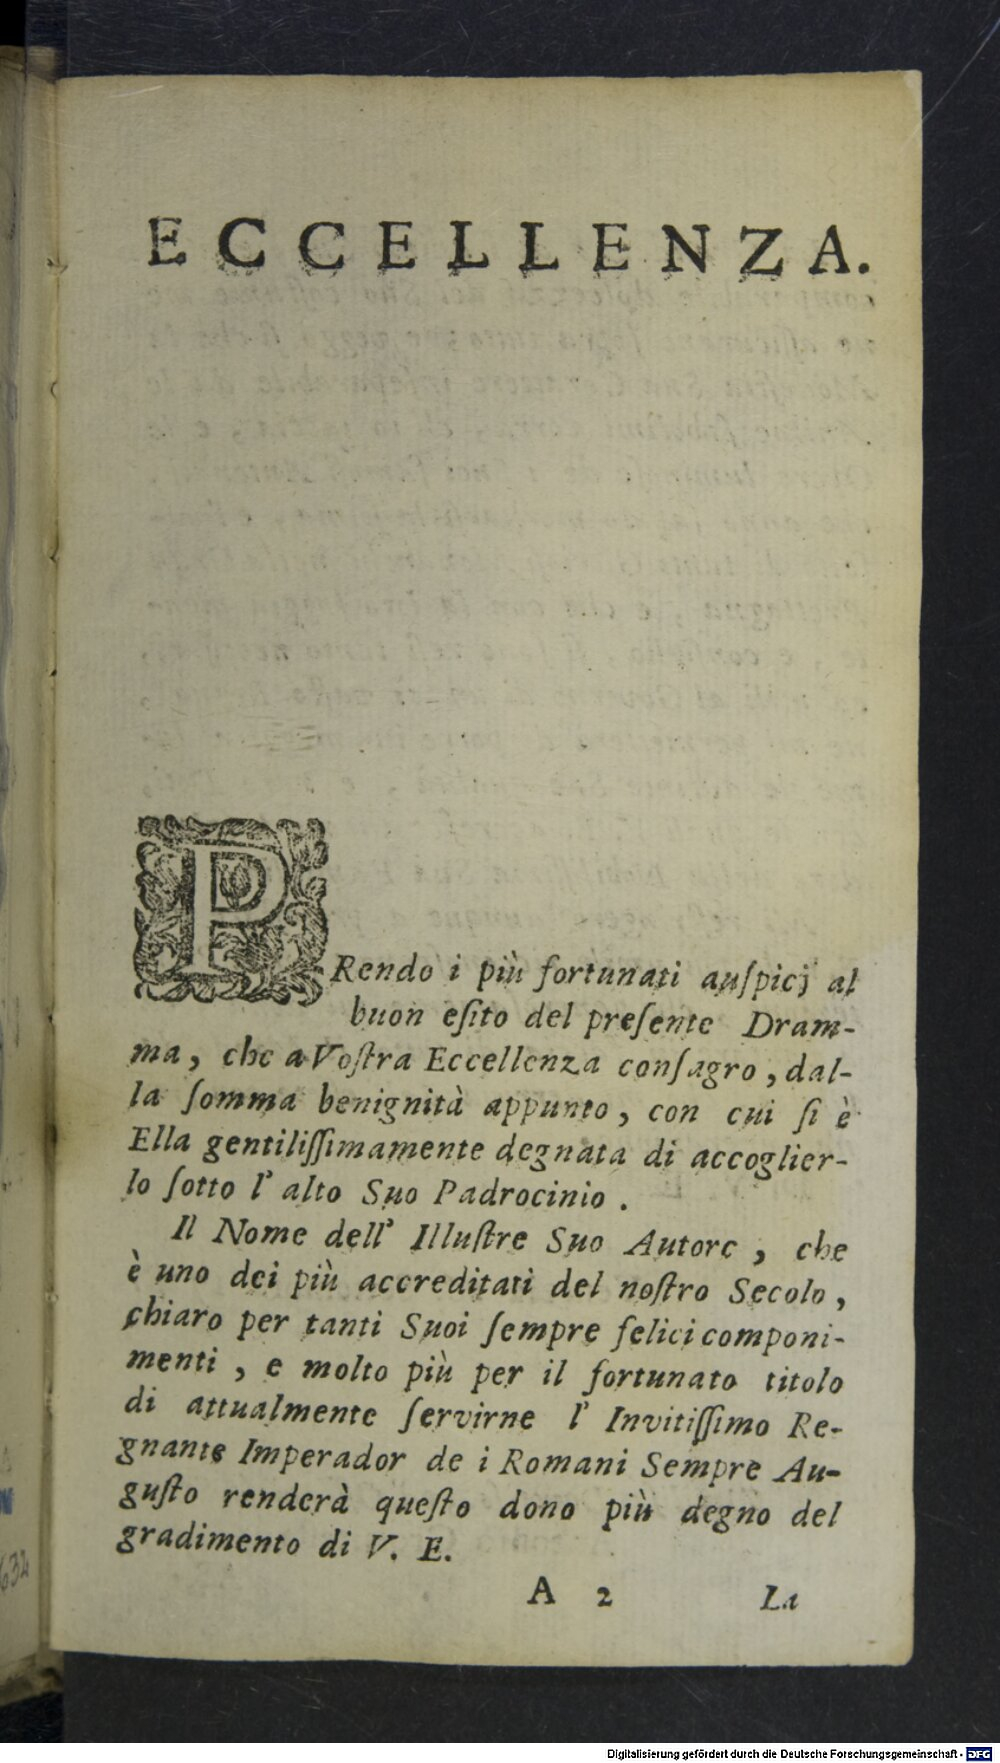 ECCELLENZA.
PRendo i più fortunati auſpicj al
buon eſito del preſente Dram-
ma, che a Voſtra Eccellenza conſagro, dal-
la ſomma benignità appunto, con cui ſi è
Ella gentiliſſimamente degnata di accoglier-
lo ſotto l' alto Suo Padrocinio.
Il Nome dell' Illuſtre Suo Autore, che
è uno dei più accreditati del noſtro Secolo,
chiaro per tanti Suoi ſempre felici componi-
menti, e molto più per il fortunato titolo
di attualmente ſervirne l' Invitiſſimo Re-
gnante Imperador de i Romani Sempre Au-
guſto renderà queſto dono più degno del
gradimento di V. E.
A 2 La
Digitalisierung gefördert durch die Deutsche Forschungsgemeinschaft - DFG